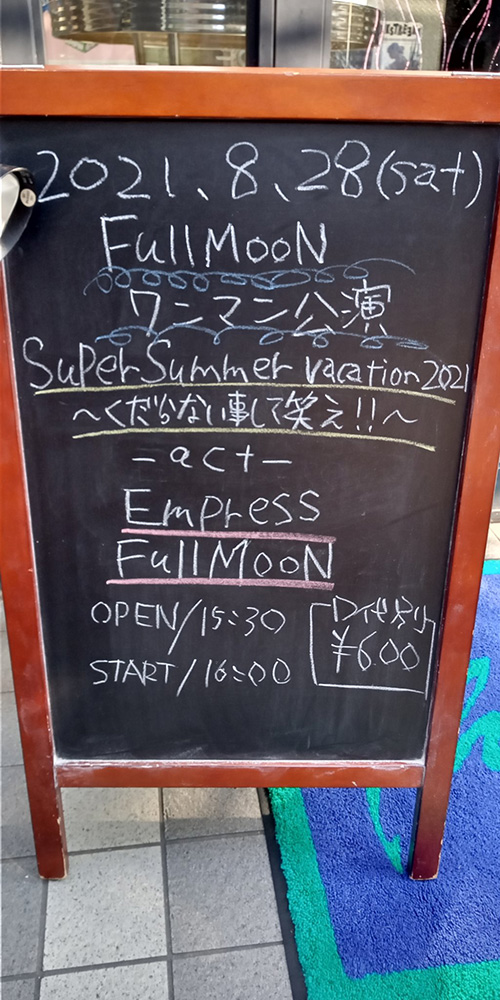 2021、8、28(sat)
FullMooN
ワンマン公演
Super Summer vacation 2021
～くだらない事して笑え!!～
－act－
Empress
FullMooN
OPEN/15:30
START/16:00
D代別り
¥600